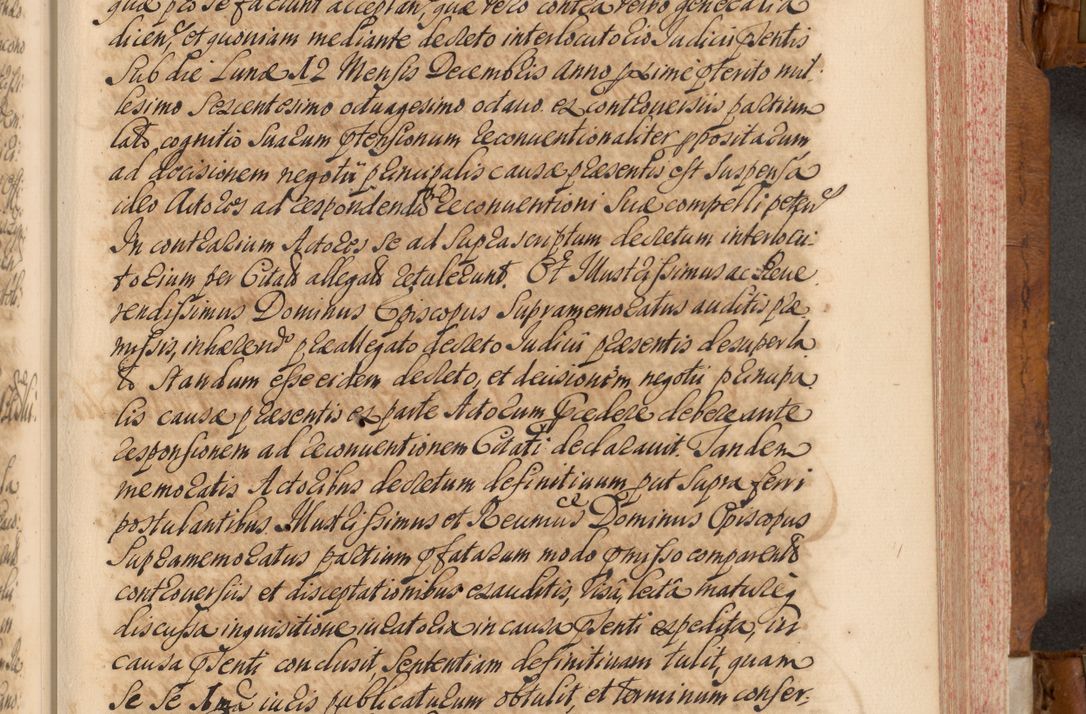 quæ pro se faciunt acceptan, quæ vero contra verbo generalia
dicen, et quoniam mediante decreto interlocutorio Judicii pñtis
sub die Lunæ 12 Mensis Decembris Anno pxime pterito mil-
lesimo sexcentesimo octuagesimo octavo. ex controversiis partium
lato, cognitio suarum ptensionum reconventionaliter ppositarum
ad decisionem negotii principalis causæ præsentis est suspensa
ideo Actores ad respondend reconventioni suæ compelli peten
In contrarium Actores se ad suprascriptum decretum interlocu-
torium per Citat allegat retulerunt. Et Illustrissimus ac Reve-
rendissimus Dominus Episcopus supramemoratus auditis præ-
missis, inhærendo præallegato decreto Judicii præsentis desuper la
to standum esse eidem decreto, et decisionem negotii principa-
lis causæ præsentis ex parte Actorum pcedere debere ante
responsionem ad reconventionem Citati declaravit. Tandem
memoratis Actoribus decretum definitivum put supra ferri
postulantibus. Illustrissimus et Reverendissimus Dominus Episcopus
supramemoratus partium pfatarum modo pmisso comparent
controversiis et disceptationibus exauditis, visâ, lectâ matureq
discussa inquisitione iuratoria in causa pñti expedita, in
causa pñti conclusit, sententiam definitivam tulit, quam
se se iuris publicaturum obtulit, et terminum conser-